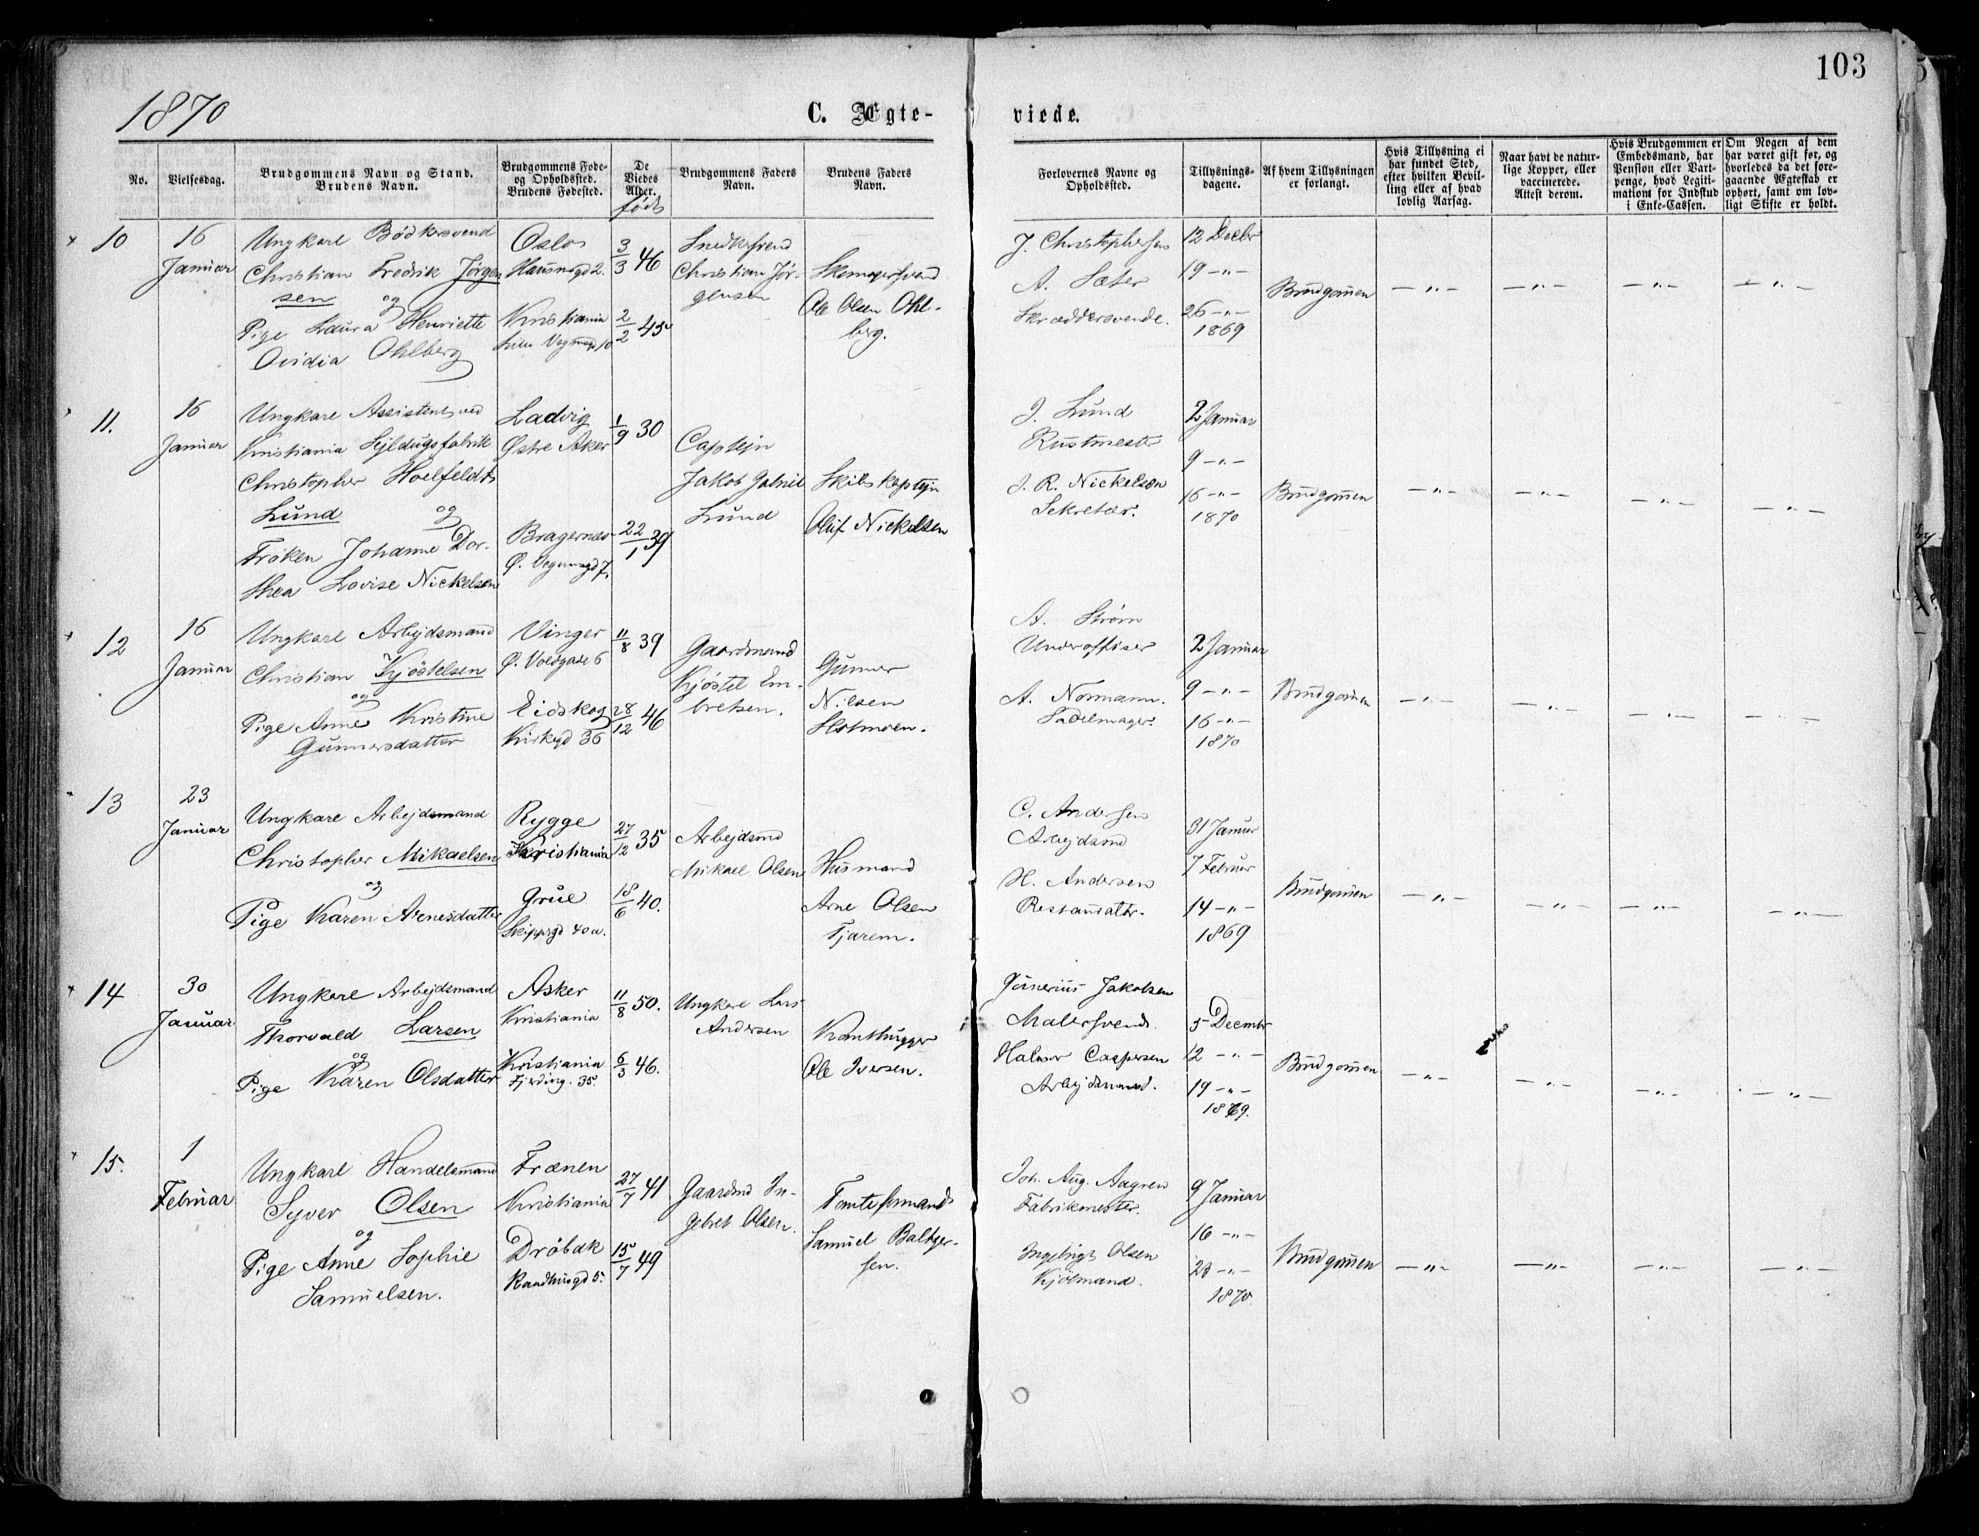 103
1870
C. Ægte-
viede.
No.
Vielsesdag.
Brudgommens Navn og Stand.
Brudens Navn.
Brudgommens Føde-
og Opholdssted.
Brudens Fødested.
De
Viedes
Alder.
født
Brudgommens Faders
Navn.
Brudens Faders
Navn.
Forlovernes Navne og
Opholdssted.
Tillysnings-
dagene.
Af hvem Tillysningen
er forlangt.
Hvis Tillysning ei
har fundet Sted,
efter hvilken Bevil-
ling eller af hvad
lovlig Aarsag.
Naar havt de natur-
lige Kopper, eller
vaccinerede.
Attest derom.
Hvis Brudgommen er
Embedsmand, har
Pension eller Vart-
penge, hvad Legiti-
mationi for Indskud
i Enke-Cassen.
Om Nogen af dem
har været gift før, og
hvorledes da det fore-
gaaende Ægteskab er
ophørt, samt om lov-
ligt Skifte er holdt.
10
16
Januar
Ungkarl Bödkersvend
Christian Fredrik Jörgen
sen
og
Pige Laura Henriette
Ovidia Ohlberg
Oslo
Hausmsgd 2.
Kristiania
Lille Vognmgd 10
3/3 46
2/2 45
Snedkersvend
Christian Jör-
gensen
Skomagersvend
Ole Olsen Ohl-
berg.
J. Christophersen
A. Sæter
Skræddersvende.
12 Decbr
19 -"-
26 -"-
1869
Brudgommen
-"- -"- -"- -"-
11.
16
Januar
Ungkarl Assistent ved
Kristiania Sejldugsfabrik
Christopher Hoelfeldt
Lund
og
Frøken Johanne Dor-
thea Lovise Nickelsen
Ladvig
Østre Aker
Bragernæs
Ø. Vognmgd 7.
1/9 30
22/1 39
Captejn
Jakob Gabriel
Lund
Skibskaptejn
Oluf Nickelsen
J. Lund
Rustmester
J. R. Nickelsen
Sekretær.
2 Januar
9 -"-
16 -"-
1870
Brudgommen
-"- -"- -"- -"-
12
16
Januar
Ungkarl Arbejdsmand
Christian Kjöstelsen
og
Pige Anne Kristine
Gunnersdatter
Vinger
Ø. Voldgade 6
Eidskog
Kirkegd 36
11/8 39
28/12 46
Gaardmand
Kjöstel Em-
bretsen.
Gunner
Nilsen
Holmoen.
A. Strøm
Underofficer
A. Normann.
Sadelmager.
2 Januar
9 -"-
16 -"-
1870
Brudgommen
-"- -"- -"- -"-
13
23
Januar
Ungkarl Arbejdsmand
Christopher Mikaelsen
og
Pige Karen Arnesdatter
Rygge
Kristiania
Grue
Skippergd 40a.
27/12 35
18/6 40.
Arbejdsmd
Mikael Olsen
Husmand
Arne Olsen
Tjarem.
C. Andersen
Arbejdsmd
H. Andersen
Restauratør.
31 Januar
7 Februar
14 -"-
1869
Brudgommen
-"- -"- -"- -"-
14
30
Januar
Ungkarl Arbejdsmand
Thorvald Larsen
og
Pige Karen Olsdatter
Asker
Kristiania
Kristiania
Fjerding. 35
11/8 50.
6/3 46.
Ungkarl Lars
Andersen
Kanthugger
Ole Iversen.
Gunerius Jakobsen
Malersvend.
Halvor Caspersen
Arbejdsmand.
5 Decembr
12 -"-
19 -"-
1869.
Brudgommen
-"- -"- -"- -"-
15.
1
Februar
Ungkarl Handelsmand
Syver Olsen
og
Pige Anne Sophie
Samuelsen.
Frænen
Kristiania
Dröbak
Raadhusgd 5.
27/7 41
15/7 49
Gaardmd In-
gebret Olsen.
Tomteformand
Samuel Baltzer-
sen.
Joh. Aug. Aagren
Fabrikmester.
Ingebrigt Olsen
Kjölmand.
9 Januar
16 -"-
23 -"-
1870.
Brudgommen
-"- -"- -"- -"-